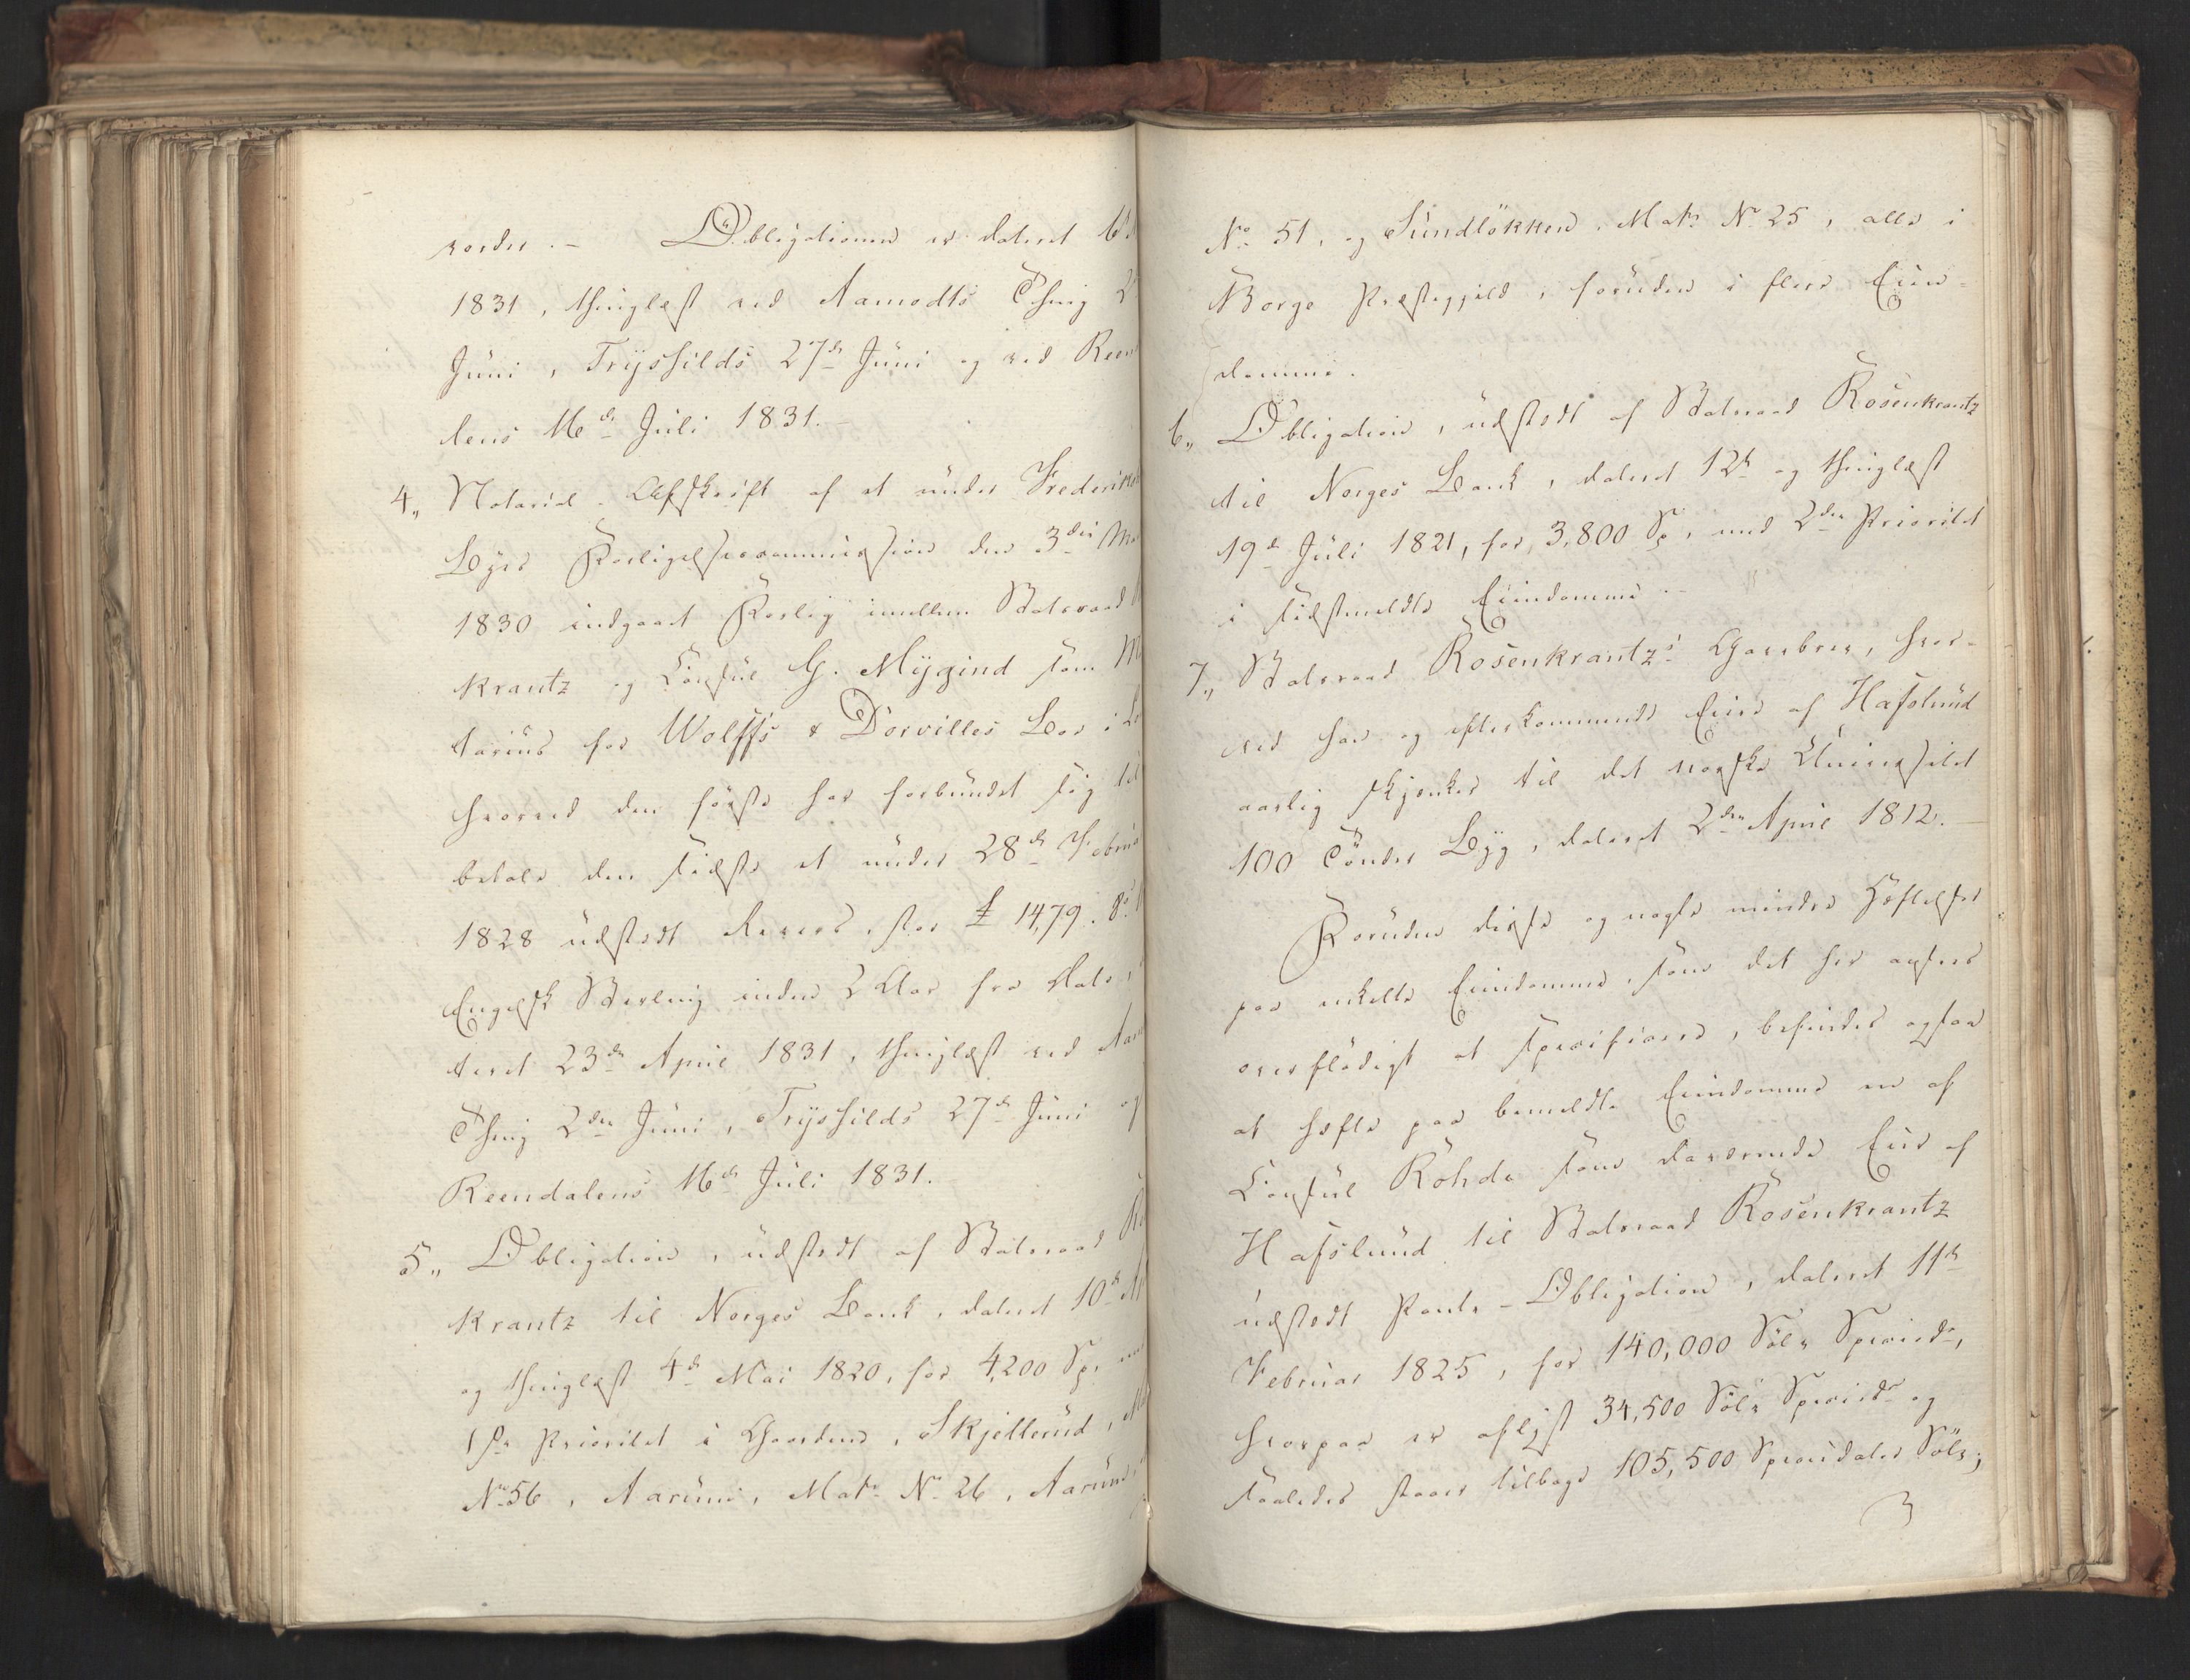 vorder. – Obligationen er dateret 6
1831, thinglæst ved Aamodts Thing 2
Juni, Trÿssilds 27de Juni og ved Reen
lens 16de Juli 1831. –
4„ Notarial-Afskrift af et under Frederiks
Byes Forligelsescommission den 3die Ma
1830 indgaaet Forlig imellem Statsraad
krantz og Consul G. Mÿgind som M
tarius for Wolffs & Dorvilles Boe i
hvorved den förste har forbundet sig til
betale den sidste et under 28de Februa
1828 udstedt Revers, stor £ 1479. 8s.
Engelsk Sterling inden 2 Aar fra Dato,
teret 23de April 1831, thinglæst ved Aa
Thing 2den Juni, Trÿssilds 27de Juni og
Reendalens 16de Juli 1831.
5„ Obligation, udstedt af Statsraad Ro
krantz til Norges Bank, dateret 10de A
og thinglæst 4de Mai 1820, for 4,200 Sp.
1ste Prioritet i Gaardene, Skjellerud, M
No 56, Aarum, Matr. No 26, Aarum
No 51, og Sundlökken, Matr. No 25, alle i
Borge Præstegjeld, foruden i flere Eien-
domme.
6„ Obligation, udstedt af Statsraad Rosenkrantz
til Norges Bank, dateret 12te og thinglæst
19de Juli 1821, for 3,800 Sp, med 2den Prioritet
i sidstmeldte Eiendomme. –
7„ Statsraad Rosenkrantz's Gavebrev, hvor-
ved han og efterkommende Eiere af Hafslund
aarlig skjenker til det norske Universitet
100 Tönder Byg, dateret 2den April 1812. –
Foruden disse og nogle mindre Hæftelser
paa enkelte Eiendomme, som det her agtes
overflödigt at specificere, befindes ogsaa
at hæfte paa bemeldte Eiendomme en af
Consul Rohde som daværende Eier af
Hafslund til Statsraad Rosenkrantz
udstedt Pante-Obligation, dateret 11te
Februar 1825, for 140,000 Sölv Speciedr,
hvorpaa er aflyst 34,500 Sölv Specied og
saaledes staaer tilbage 105,500 Speciedaler Sölv;